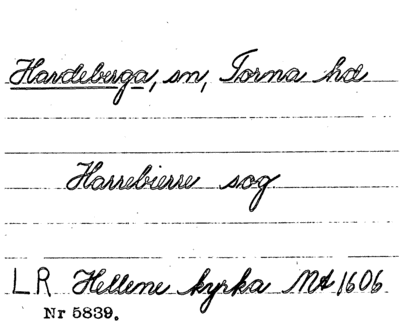 Hardeberga, sn, Torna hd
Harrebierre sog
LR Hellene kyrka Mt 1606
Nr 5839.